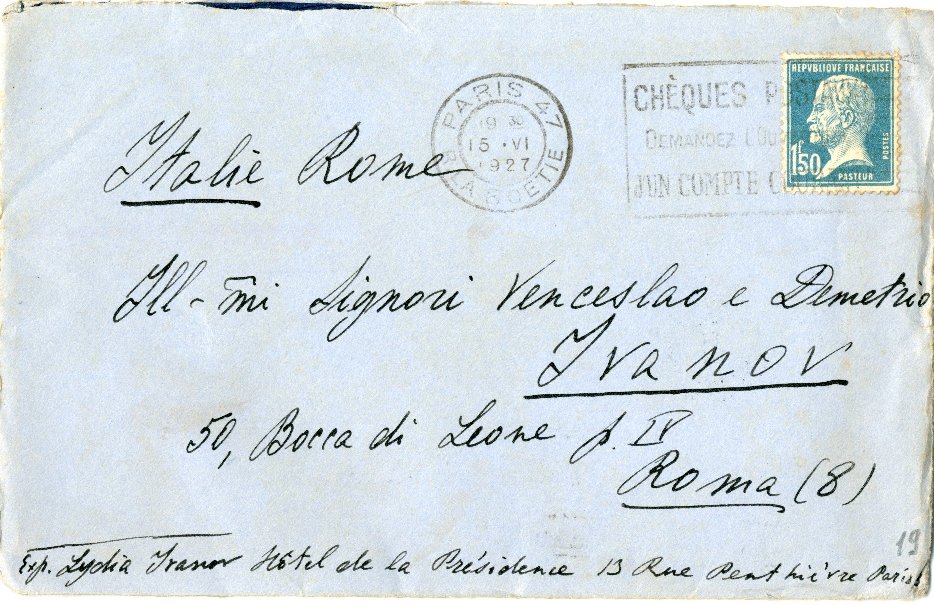 RÉPUBLIQUE FRANÇAISE
POSTES
1F50
PASTEUR
PARIS 47
19 30
15 · VI
1927
R. LA BOETIE
CHÈQUES
DEMANDEZ
UN COMPTE
Italie Rome
Ill-mi Signori Venceslao e Demetrio
Ivanov
50, Bocca di Leone p. IV
Roma (8)
Exp. Lydia Ivanov Hôtel de la Présidence 13 Rue Penthièvre Paris 8
19